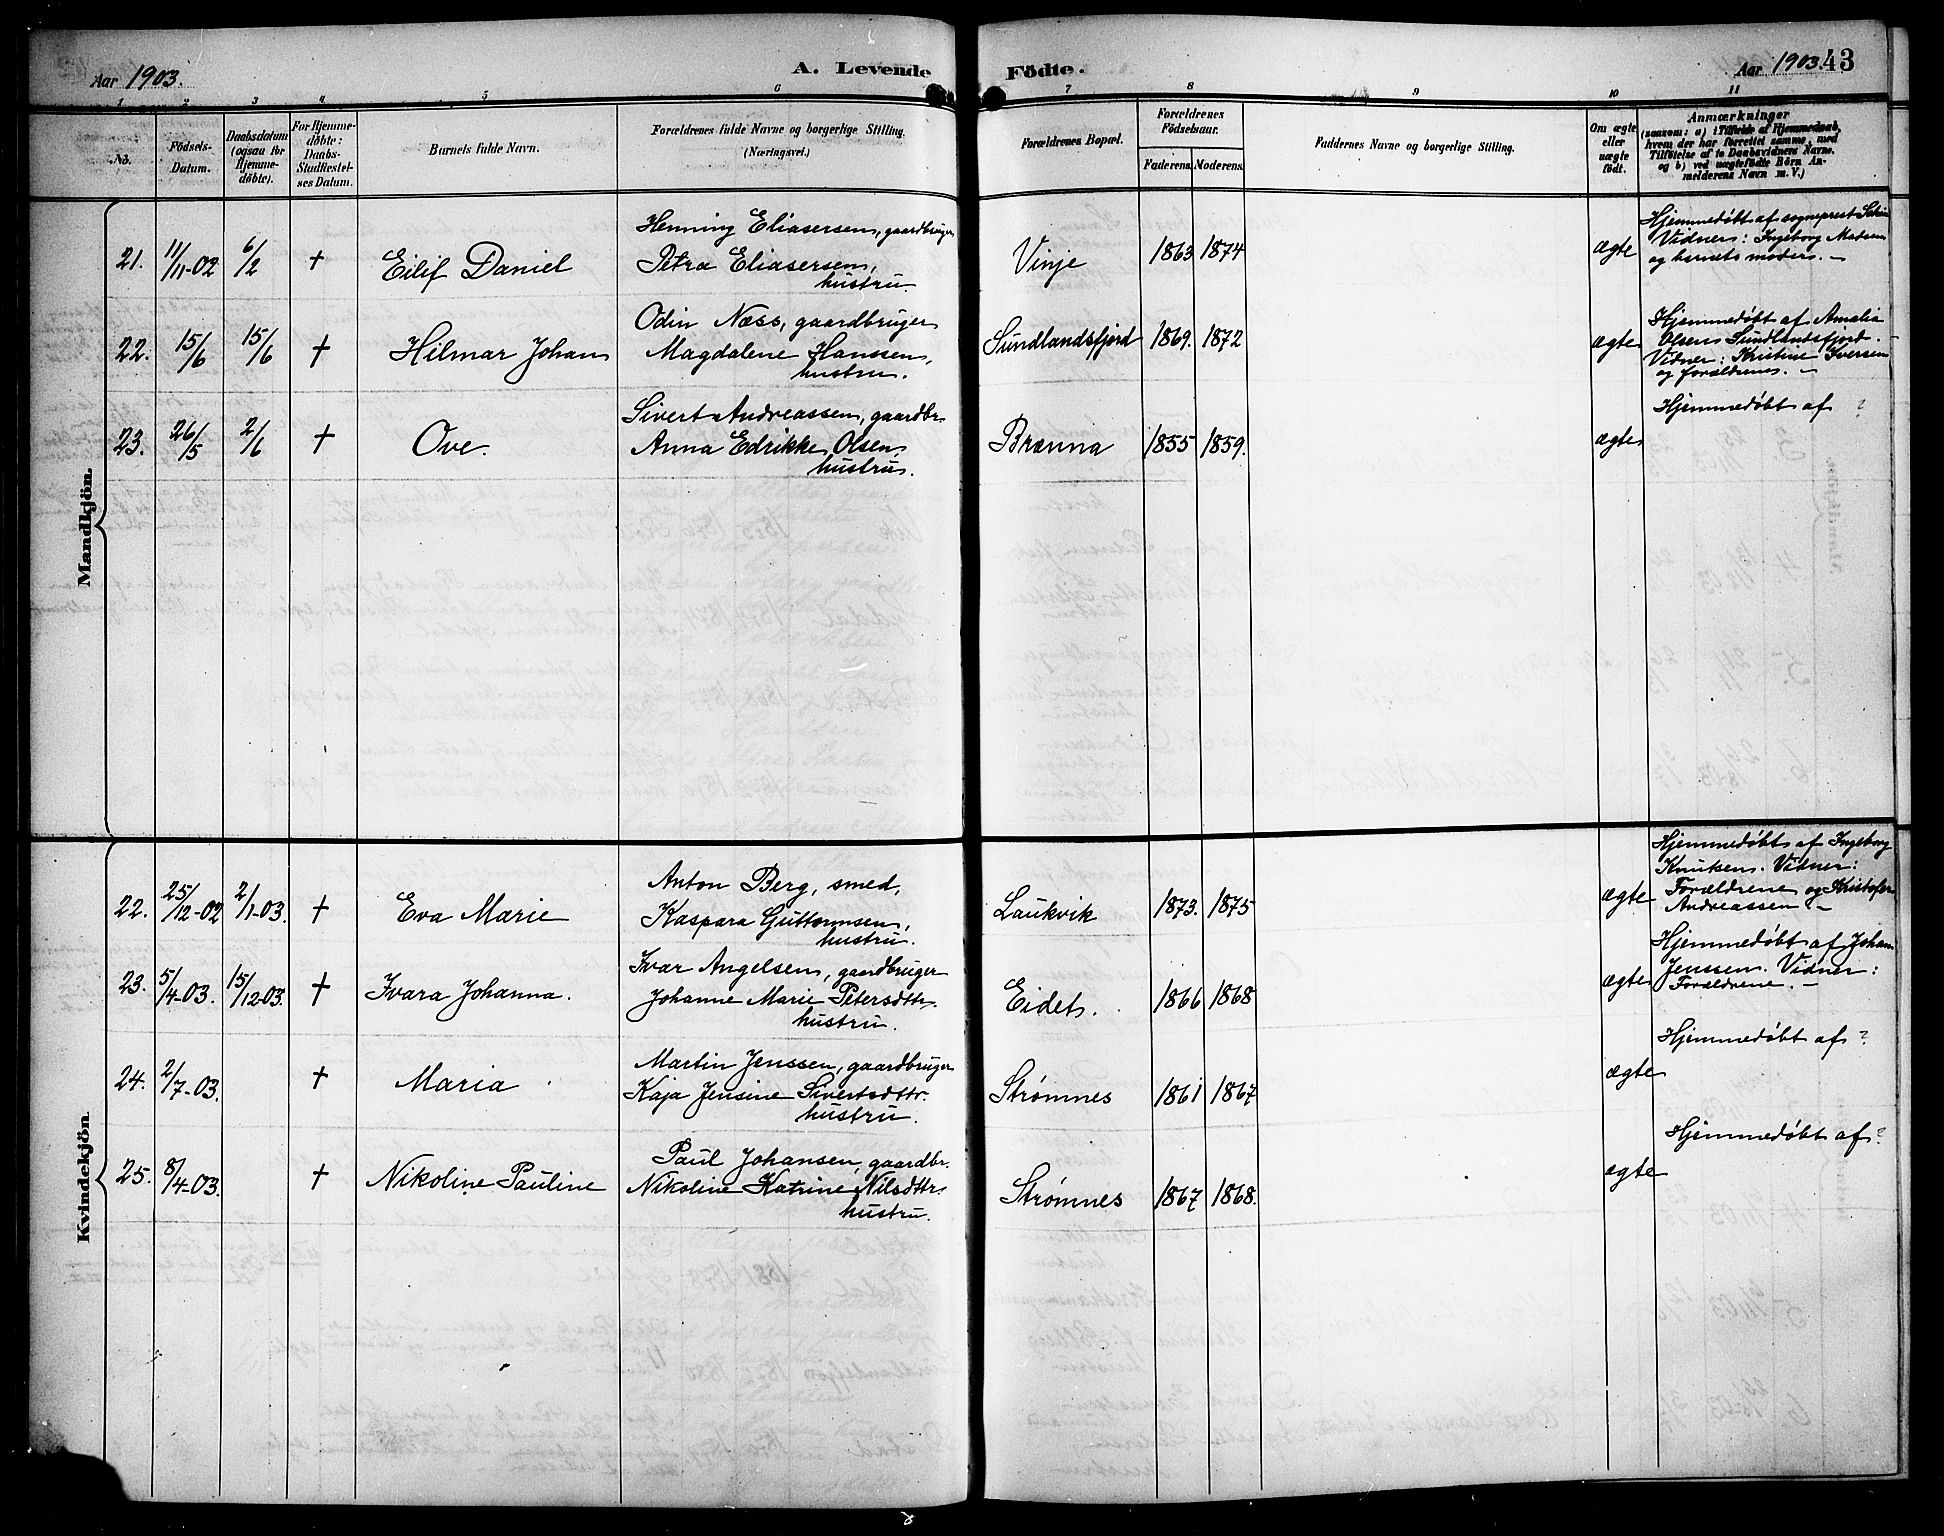 Aar 1903.
A. Levende Födte.
Aar 1903. 43
1 2 3 4 5 6 7 8 9 10 11
No.
Födsels-
Datum.
Daabsdatum
(ogsaa for
Hjemme-
döbte).
For Hjemme-
döbte:
Daabs-
Stadfæstel-
ses Datum.
Barnets fulde Navn.
Forældrenes fulde Navne og borgerlige Stilling.
(Næringsvei.)
Forældrenes Bopæl.
Forældrenes
Födselsaar.
Faderens. Moderens.
Faddernes Navne og borgerlige Stilling.
Om ægte
eller
uægte
födt.
Anmærkninger
(saasom: a) i Tilfælde af Hjemmedaab,
hvem der har forrettet samme, med
Tilföielse af to Daabsvidners Navne.
og b) ved uægtefödte Börn An-
melderens Navn m. V.)
Mandkjön.
21. 11/11-02 6/2 + Eilif Daniel
Henning Eliasersen, gaardbruger
Petra Eliasersen,
hustru.
Vinje 1863 1874 ægte
Hjemmedøbt af sogneprest
Vidner: Ingeborg Madsen
og barnets moder. —
22. 15/6 15/6 + Hilmar Johan
Odin Næss, gaardbruger
Magdalene Hanssen,
hustru.
Sundlandsfjord 1869. 1872 ægte
Hjemmedøbt af Amalia
Olsen Sundlandsfjord.
Vidner: Kristine Iversen
og forældrene. —
23. 26/5 2/6 + Ove.
Sivert Andreassen, gaardbr.
Anna Edrikke Olsen,
hustru.
Brænna 1855 1859. ægte
Hjemmedøbt af ?
Kvindekjön
22. 25/12-02 2/1-03. + Eva Marie
Anton Berg, smed,
Kaspara Guttormsen,
hustru.
Laukvik 1873. 1875 ægte
Hjemmedøbt af Ingeborg
Knutsen. Vidner:
Forældrene og Kristofer
Andreassen. —
23. 5/4-03. 15/12-03. + Ivara Johanna.
Ivar Angelsen, gaardbruger
Johanne Marie Petersdttr.
hustru.
Eidet. 1866 1868 ægte
Hjemmedøbt af Johan
Jenssen. Vidner:
Forældrene. —
24. 2/7-03. + Maria
Martin Jenssen, gaardbruger
Kaja Jensine Sivertsdttr.
hustru.
Strømnes 1861 1867 ægte
Hjemmedøbt af ?
25. 8/4-03. + Nikoline Pauline
Paul Johansen, gaardbr.
Nikoline Katrine Nilsdttr.
hustru.
Strømnes 1867 1868. ægte
Hjemmedøbt af ?